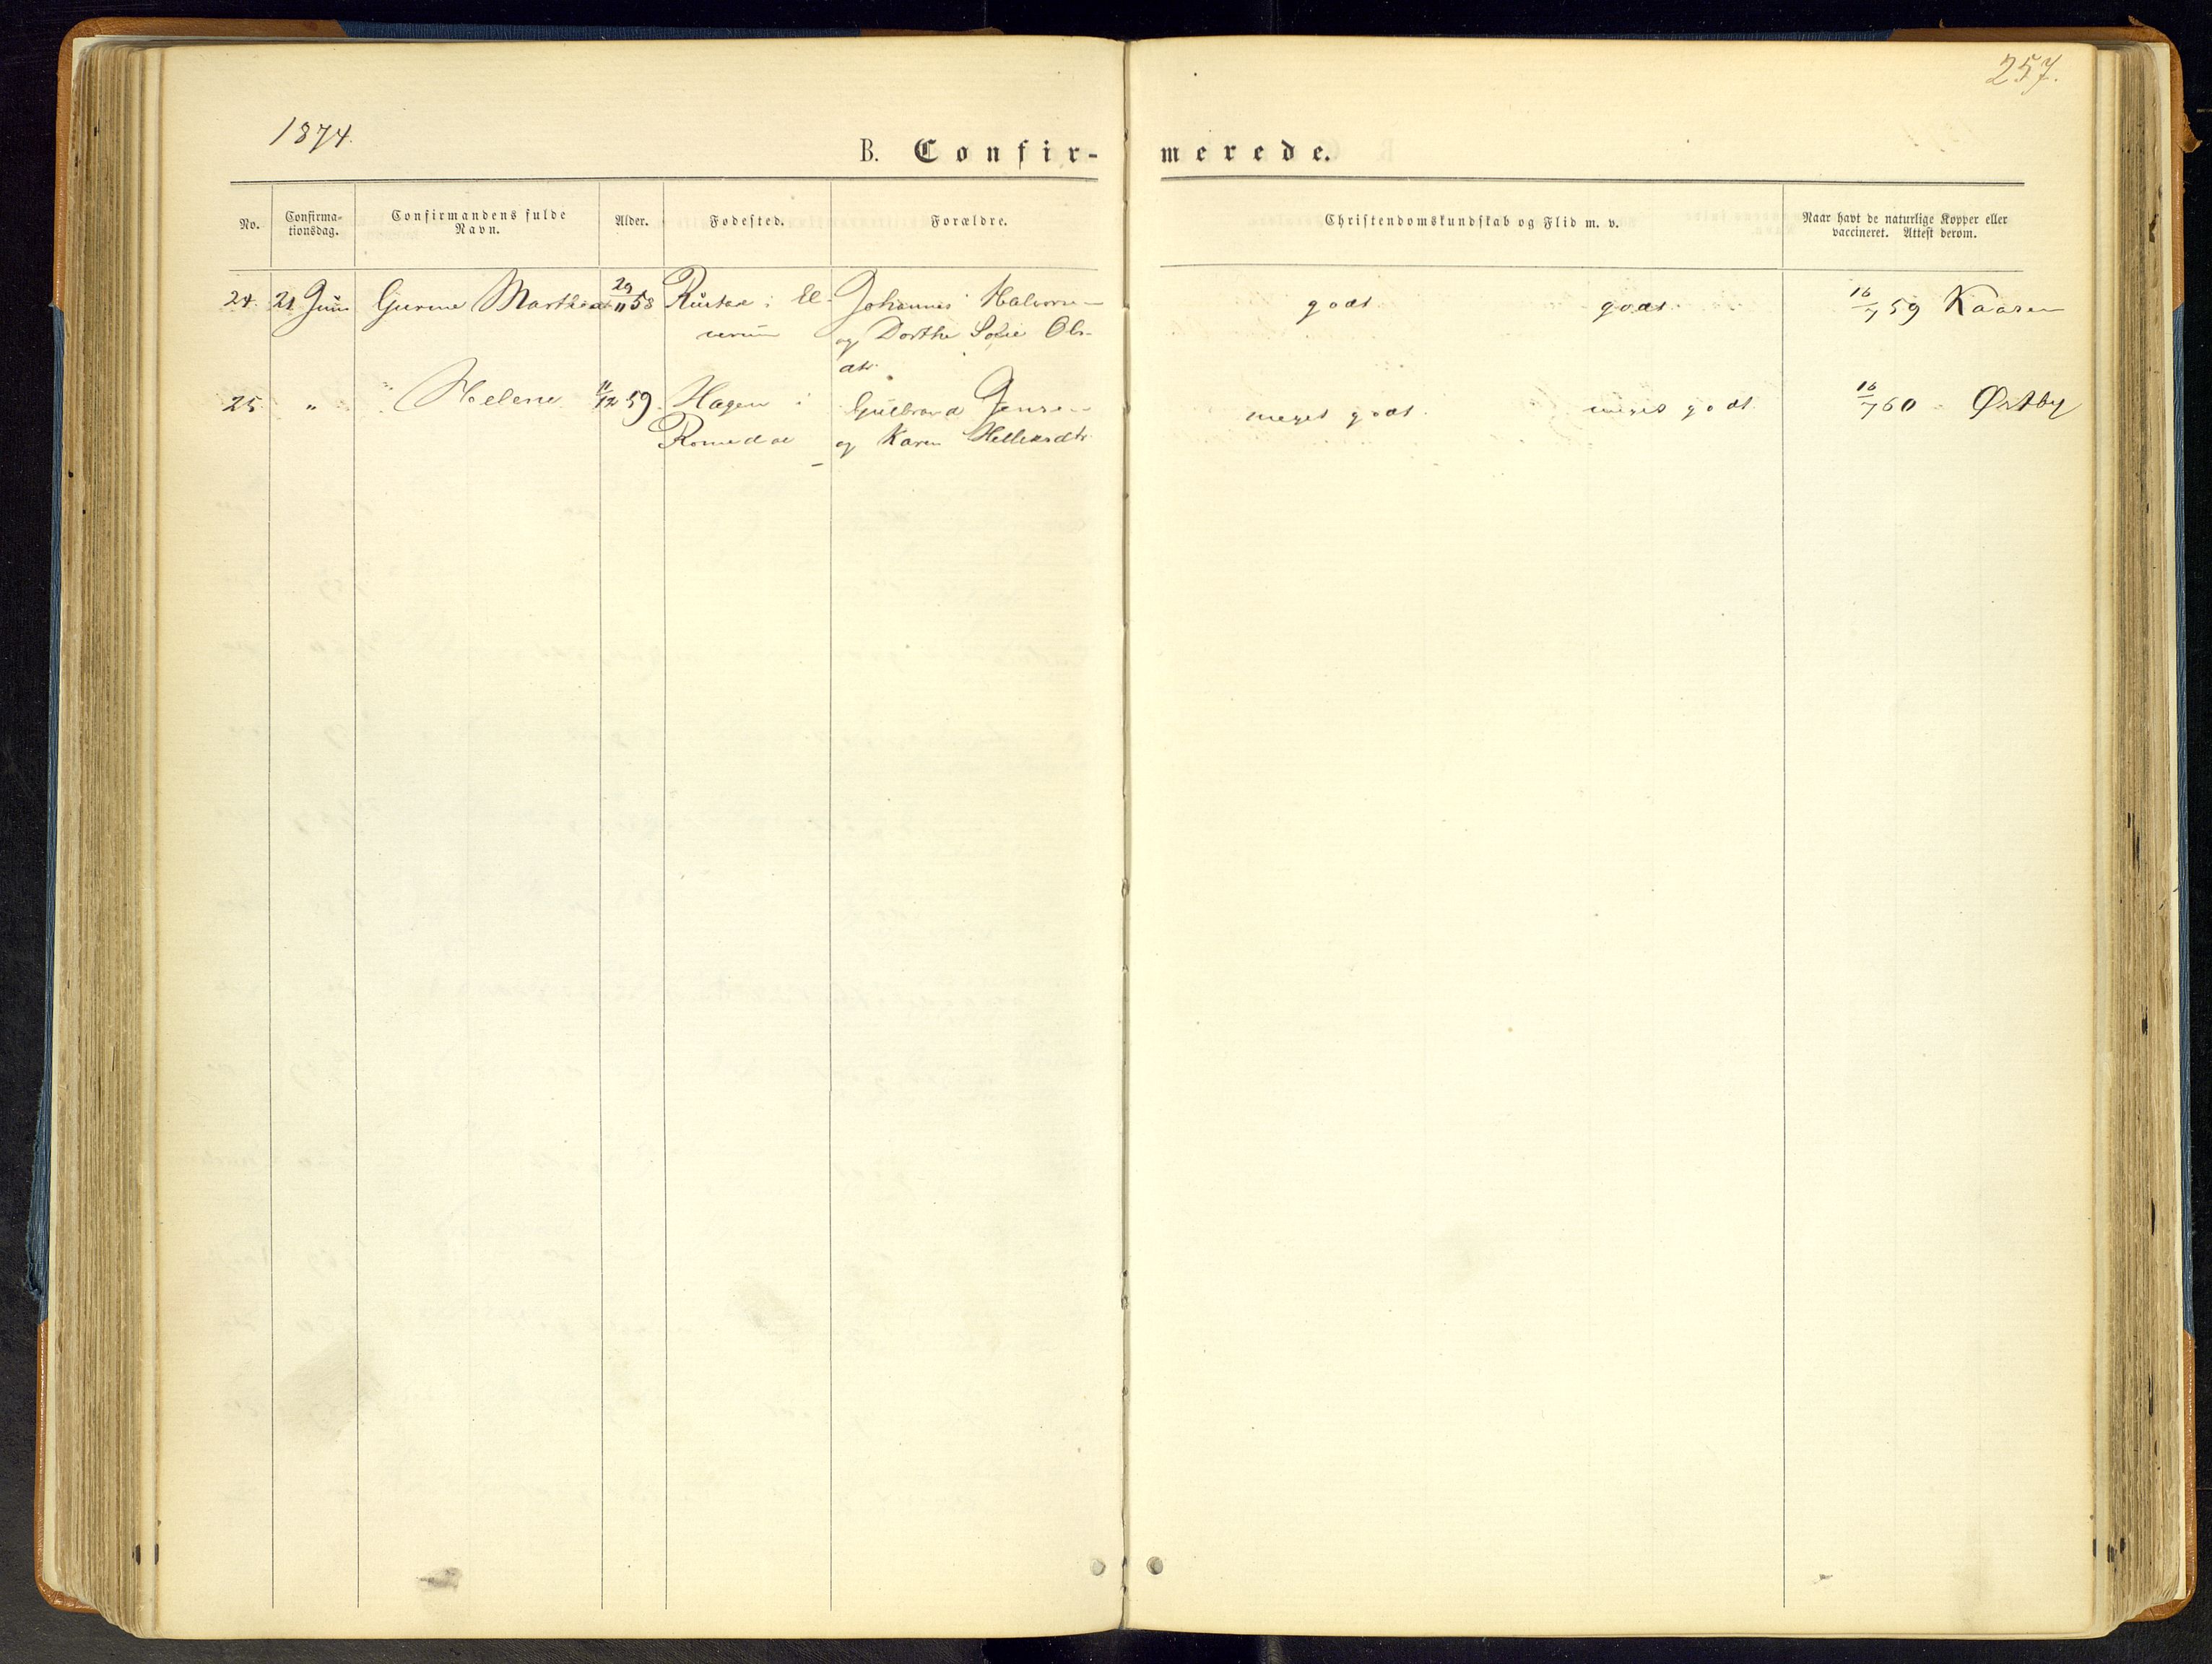 257.
1874.
B. Confir- merede.
No. Confirma- tionsdag. Confirmandens fulde Navn. Alder. Fødested. Forældre. Christendomskundskab og Flid m. v. Naar havt de naturlige Kopper eller vaccineret. Attest derom.
24. 21 Juni Gurine Marthea 29/11 58 Rustad i El- Johannes Halvorsen godt godt 16/7 59 Kaasen
verum og Dorthe Sofie Ols-
dtr.
25. " " Helene 11/12 59. Hagen i Gulbrand Jensen meget godt. meget godt. 16/7 60 Østby
Romedal og Karen Hellensdtr.